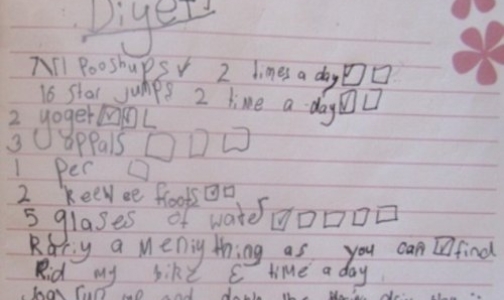 Diyet
pooshups ✓ 2 times a day
16 star jumps 2 time a day
2 yoget
3 appals
1 per
2 keewee froots
5 glases of water
Rariy a meniy thing as you can find
Rid my bike time a day